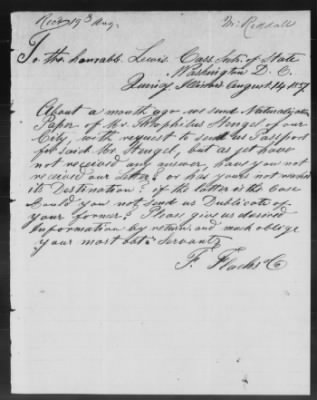 Recd 19th Aug.
Mr. Reddall
To the honorabl. Lewis Cass Sctr. of State
Washington D. C.
Quincy Illinois August 14 1857
About a month ago we send Naturalization
Paper of Mr. Theophilus Stengel of our
City, with request to send us Passport
for said Mr Stengel, but as yet have
not received any answer, have you not
received our Letter? or has yours not reached
its Destination? if the latter is the Case
could you not send us Dublicate of
your former? Please give us desired
Information by return and much oblige
your most obt. Servants
F. Flachs & Co